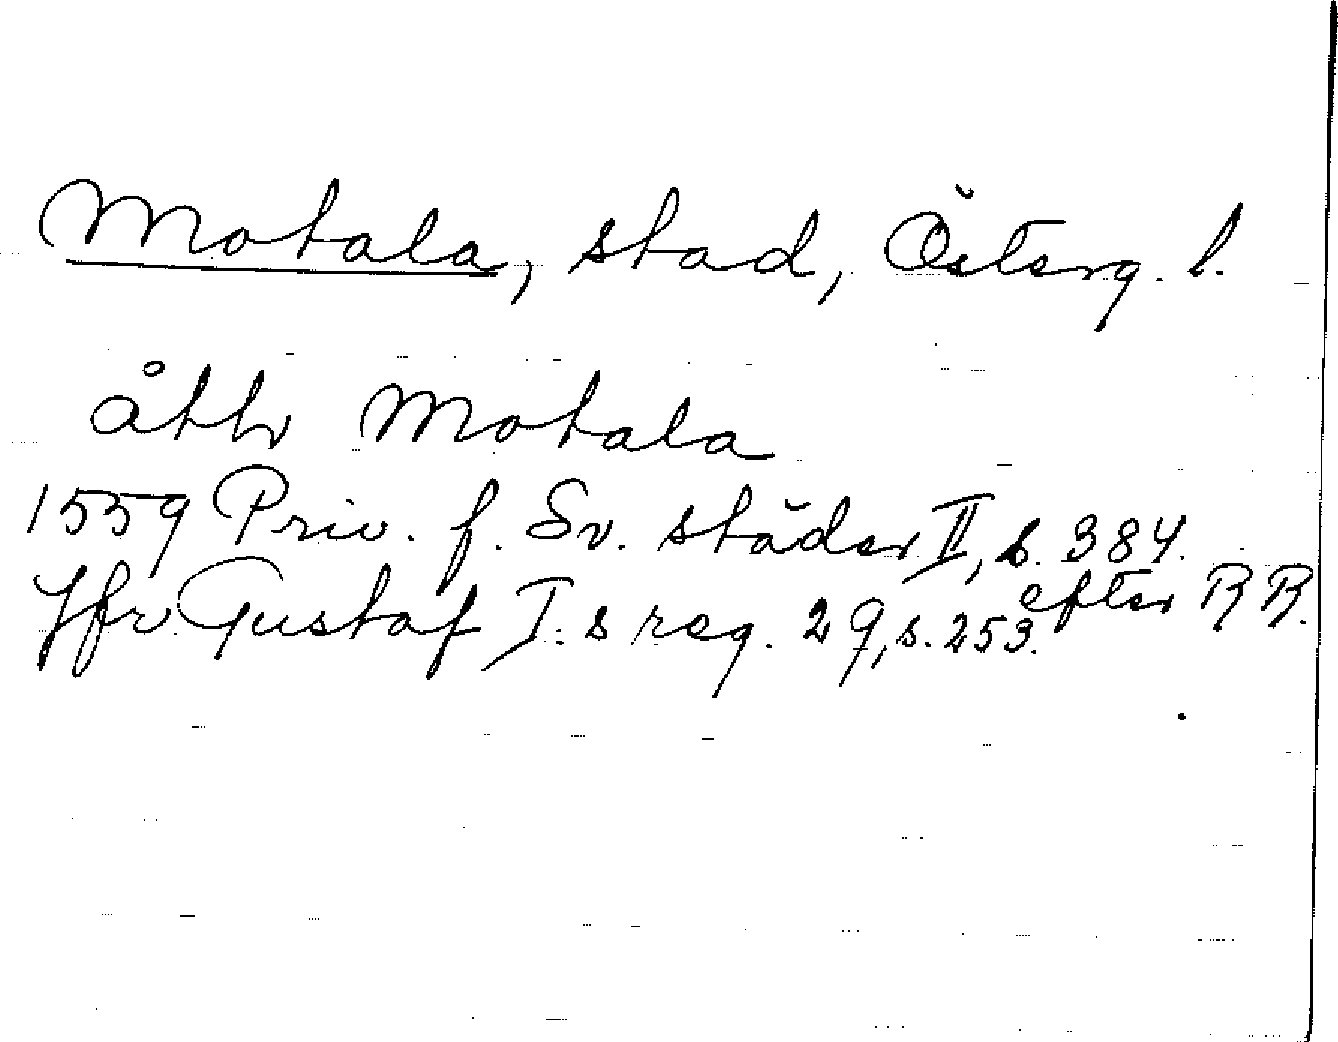 Motala, stad, Österg. l.
åthr Motala
1559 Priv. f. Sv. städer II, s. 384.
Jfr Gustaf I:s reg. 29, s. 253. efter RR.